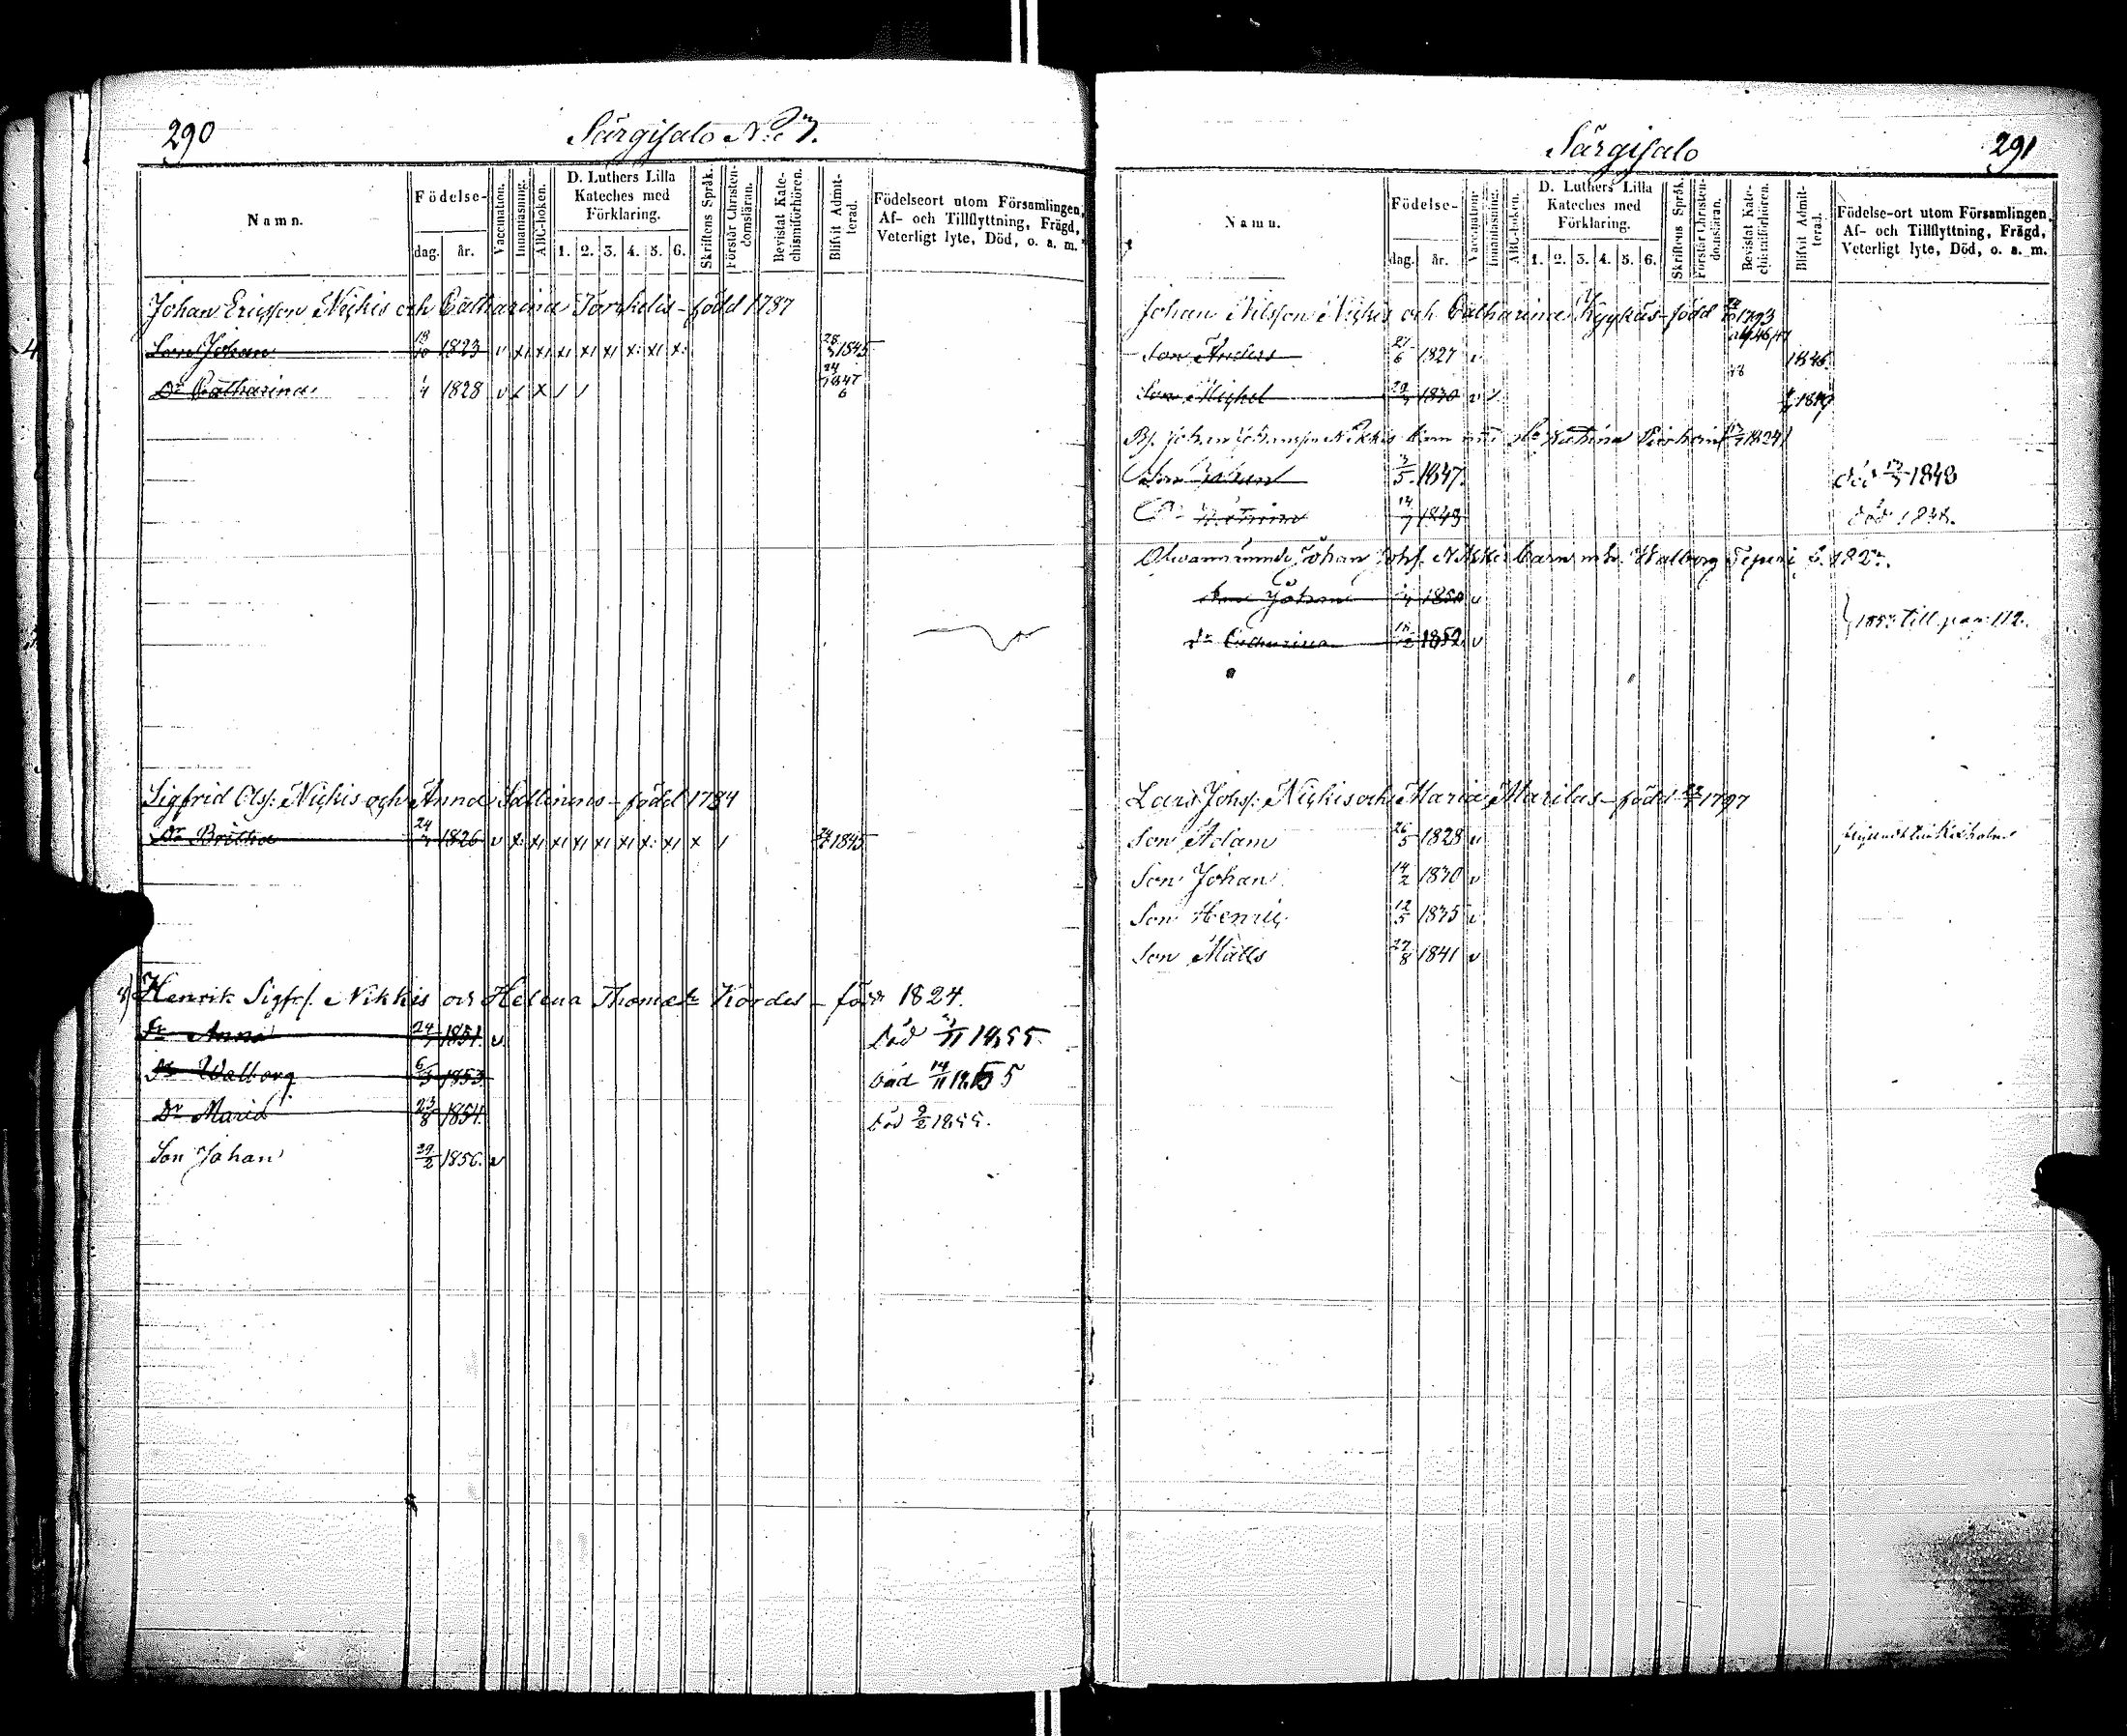 290
Särgisalo No 7.
Namn.
Födelse-
dag.
år.
Vaccination.
Innanläsning.
ABC-boken.
D. Luthers Lilla
Kateches med
Förklaring.
1. 2. 3. 4. 5. 6.
Skriftens Språk.
Förstår Christen-
domsläran.
Bevistat Kate-
chismiförhören.
Blifvit Admit-
terad.
Födelseort utom Församlingen,
Af- och Tillflyttning, Frägd,
Veterligt lyte, Död, o. a. m.
Johan Ericsson Nickis och Catharina Torkelis - född 1787
Son Johan 13/10 1823 v x x x x x x x x 28/3 1845
Dr Catharina 1/4 1828 v x 24 1847 6
Sigfrid Olss: Nickis och Anna Sallinens - född 1784
Dr Britha 24/3 1826 v 1845
Henrik Sigfrs. Nikkis och Helena Thomædr Kordes - född 1824.
Dr Anna 24 1851. v död 11 1855.
Dr Walborg 6/3 1853 död 14/11 1855
Dr Maria 23/8 1854. död 9/2 1855.
Son Johan 29/2 1856. v
Särgisalo
291
Namn.
Födelse-
dag.
år.
Vaccination.
Innanläsning.
ABC-boken.
D. Luthers Lilla
Kateches med
Förklaring.
1. 2. 3. 4. 5. 6.
Skriftens Språk.
Förstår Christen-
domsläran.
Bevistat Kate-
chismiförhören.
Blifvit Admit-
terad.
Födelse-ort utom Församlingen,
Af- och Tillflyttning, Frägd,
Veterligt lyte, Död, o. a. m.
Johan Nilsson Nickis och Catharina Kyykäs - född 1793
Son Anders 21/6 1827 v 1846.
Son Michel 29 1830 v 1849
Johan Johansson Nikkis barn med 1824
Son Johan 3/5 1847. död 1848
Dr 14/7 1843 död
Johan Johs. Nikkis barn m. h. Walborg Teperi f. 182
Son Johan 1850 v
Dr Catharina 1852 v till pag. 112.
Lars Johss: Nickis och Maria Marilas - född 1797
Son Adam 26/5 1828 v
Son Johan 14/2 1830 v
Son Henric 12/5 1835 v
Son Matts 27/8 1841 v